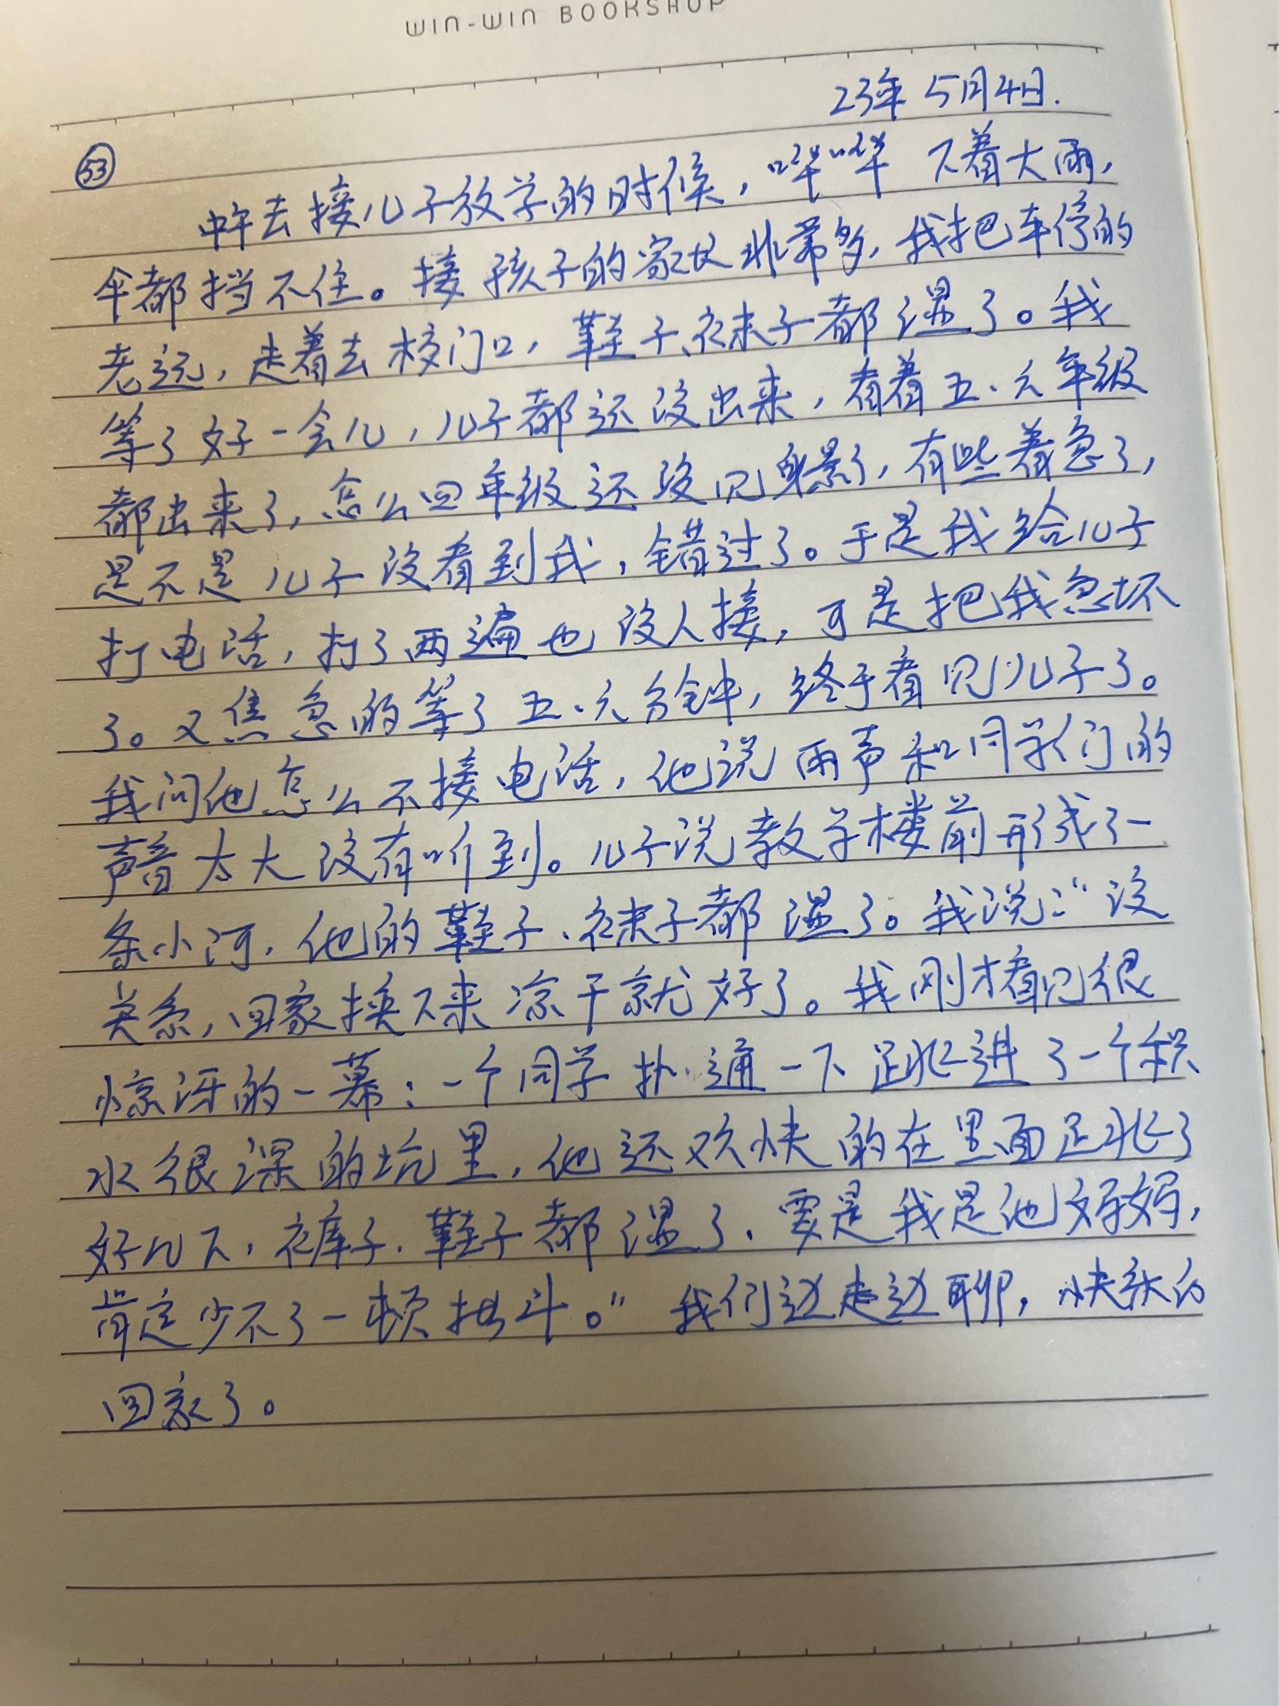 WIN-WIN BOOKSHOP
23年5月4日.
53
中午去接儿子放学的时候，哗哗下着大雨，
伞都挡不住。接孩子的家长非常多，我把车停的
老远，走着去校门口，鞋子、袜子都湿了。我
等了好一会儿，儿子都还没出来，看着五、六年级
都出来了，怎么四年级还没见身影了，有些着急了，
是不是儿子没看到我，错过了。于是我给儿子
打电话，打了两遍也没人接，可是把我急坏
了。又焦急的等了五、六分钟，终于看见儿子了。
我问他怎么不接电话，他说雨声和同学们的
声音太大没有听到。儿子说教学楼前形成了一
条小河，他的鞋子、袜子都湿了。我说：“没
关系，回家换下来凉干就好了。我刚才看见很
惊讶的一幕：一个同学扑通一下跳进了一个积
水很深的坑里，他还欢快的在里面跳了
好几下，裤子、鞋子都湿了、要是我是他妈妈，
肯定少不了一顿批斗。”我们边走边聊，快乐的
回家了。